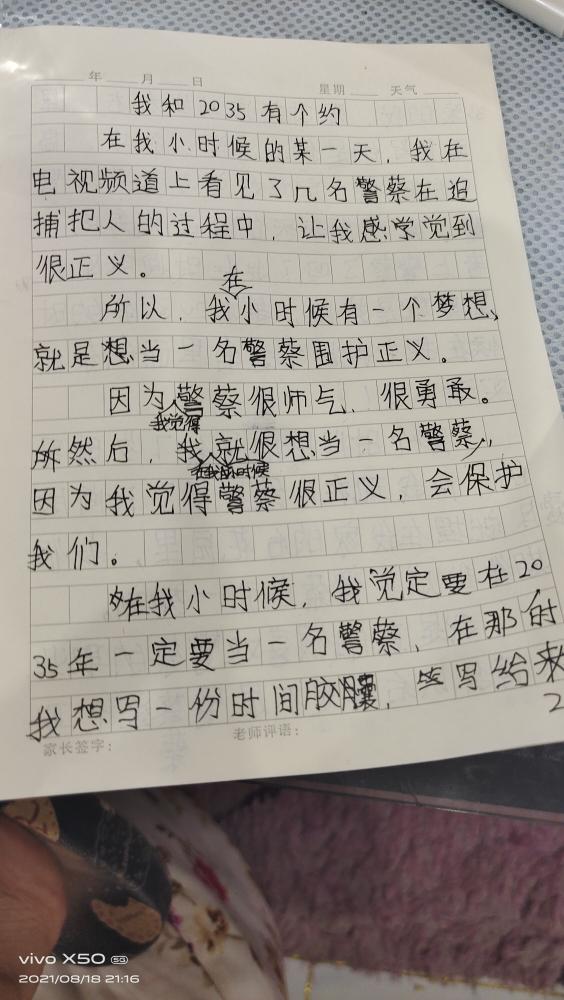 年 月 日 星期 天气
我和2035有个约
在我小时候的某一天，我在
电视频道上看见了几名警蔡在追
捕把人的过程中，让我感学觉到
很正义。
在
所以，我小时候有一个梦想，
就是想当一名警蔡围护正义。
因为警蔡很师气，很勇敢。
我觉得
所然后，我就很想当一名警蔡，
在我小时候
因为我觉得警蔡很正义，会保护
我们。
在我小时候，我觉定要在20
35年一定要当一名警蔡，在那时
我想写一份时间胶囊，写给来
2
家长签字： 老师评语：
vivo X50 5G
2021/08/18 21:16